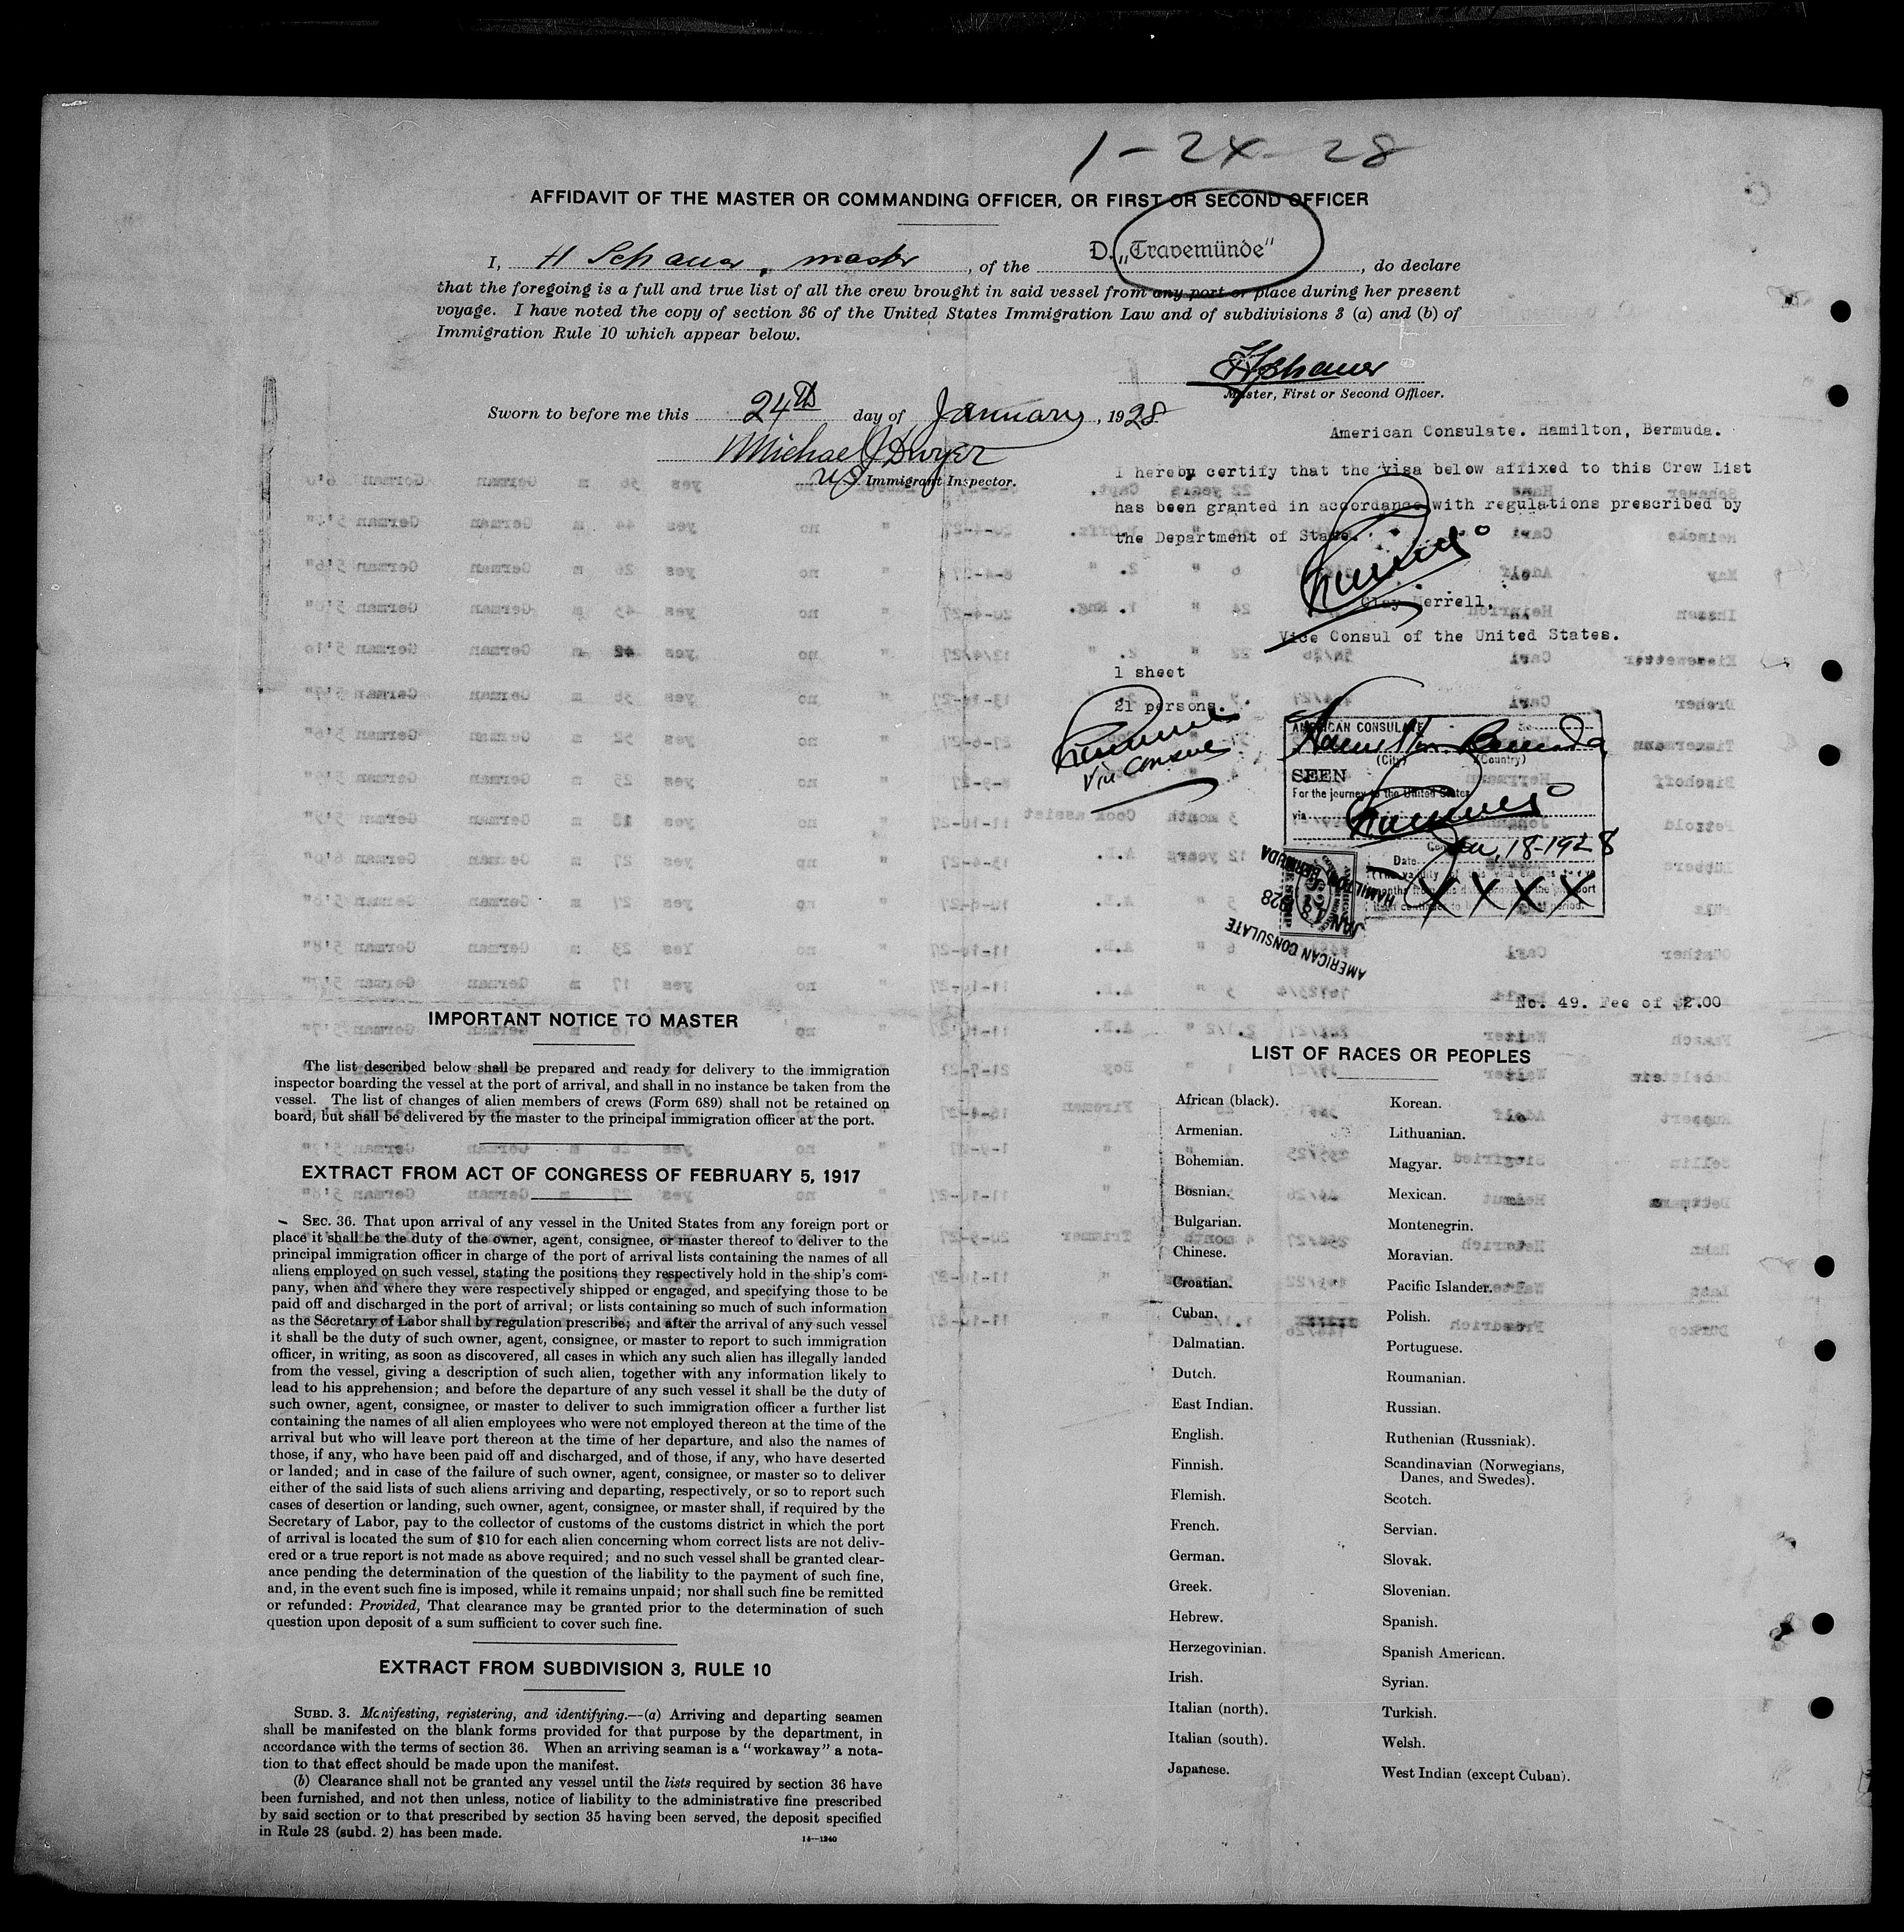 1-24-28
AFFIDAVIT OF THE MASTER OR COMMANDING OFFICER, OR FIRST OR SECOND OFFICER
I, H Schauer, master, of the D. „Travemünde", do declare
that the foregoing is a full and true list of all the crew brought in said vessel from any port or place during her present
voyage. I have noted the copy of section 36 of the United States Immigration Law and of subdivisions 3 (a) and (b) of
Immigration Rule 10 which appear below.
HSchauer
Master, First or Second Officer.
Sworn to before me this 24th day of January, 1928
Michael J Dwyer
US. Immigrant Inspector.
American Consulate. Hamilton, Bermuda.
I hereby certify that the visa below affixed to this Crew List
has been granted in accordance with regulations prescribed by
the Department of State.
Clay Merrell,
Vice Consul of the United States.
1 sheet
21 persons.
Vice Consul
AMERICAN CONSULATE
Hamilton Bermuda
(City) (Country)
SEEN
For the journey to the United States
via
Jan, 18-1928
Date
XXXX
HAMILTON BERMUDA
JAN 18 1928
AMERICAN CONSULATE
No. 49. Fee of $2.00
IMPORTANT NOTICE TO MASTER
The list described below shall be prepared and ready for delivery to the immigration
inspector boarding the vessel at the port of arrival, and shall in no instance be taken from the
vessel. The list of changes of alien members of crews (Form 689) shall not be retained on
board, but shall be delivered by the master to the principal immigration officer at the port.
EXTRACT FROM ACT OF CONGRESS OF FEBRUARY 5, 1917
SEC. 36. That upon arrival of any vessel in the United States from any foreign port or
place it shall be the duty of the owner, agent, consignee, or master thereof to deliver to the
principal immigration officer in charge of the port of arrival lists containing the names of all
aliens employed on such vessel, stating the positions they respectively hold in the ship's com-
pany, when and where they were respectively shipped or engaged, and specifying those to be
paid off and discharged in the port of arrival; or lists containing so much of such information
as the Secretary of Labor shall by regulation prescribe; and after the arrival of any such vessel
it shall be the duty of such owner, agent, consignee, or master to report to such immigration
officer, in writing, as soon as discovered, all cases in which any such alien has illegally landed
from the vessel, giving a description of such alien, together with any information likely to
lead to his apprehension; and before the departure of any such vessel it shall be the duty of
such owner, agent, consignee, or master to deliver to such immigration officer a further list
containing the names of all alien employees who were not employed thereon at the time of the
arrival but who will leave port thereon at the time of her departure, and also the names of
those, if any, who have been paid off and discharged, and of those, if any, who have deserted
or landed; and in case of the failure of such owner, agent, consignee, or master so to deliver
either of the said lists of such aliens arriving and departing, respectively, or so to report such
cases of desertion or landing, such owner, agent, consignee, or master shall, if required by the
Secretary of Labor, pay to the collector of customs of the customs district in which the port
of arrival is located the sum of $10 for each alien concerning whom correct lists are not deliv-
ered or a true report is not made as above required; and no such vessel shall be granted clear-
ance pending the determination of the question of the liability to the payment of such fine,
and, in the event such fine is imposed, while it remains unpaid; nor shall such fine be remitted
or refunded: Provided, That clearance may be granted prior to the determination of such
question upon deposit of a sum sufficient to cover such fine.
EXTRACT FROM SUBDIVISION 3, RULE 10
SUBD. 3. Manifesting, registering, and identifying.—(a) Arriving and departing seamen
shall be manifested on the blank forms provided for that purpose by the department, in
accordance with the terms of section 36. When an arriving seaman is a "workaway" a nota-
tion to that effect should be made upon the manifest.
(b) Clearance shall not be granted any vessel until the lists required by section 36 have
been furnished, and not then unless, notice of liability to the administrative fine prescribed
by said section or to that prescribed by section 35 having been served, the deposit specified
in Rule 28 (subd. 2) has been made.
14—1240
LIST OF RACES OR PEOPLES
African (black).
Armenian.
Bohemian.
Bosnian.
Bulgarian.
Chinese.
Croatian.
Cuban.
Dalmatian.
Dutch.
East Indian.
English.
Finnish.
Flemish.
French.
German.
Greek.
Hebrew.
Herzegovinian.
Irish.
Italian (north).
Italian (south).
Japanese.
Korean.
Lithuanian.
Magyar.
Mexican.
Montenegrin.
Moravian.
Pacific Islander.
Polish.
Portuguese.
Roumanian.
Russian.
Ruthenian (Russniak).
Scandinavian (Norwegians,
Danes, and Swedes).
Scotch.
Servian.
Slovak.
Slovenian.
Spanish.
Spanish American.
Syrian.
Turkish.
Welsh.
West Indian (except Cuban).